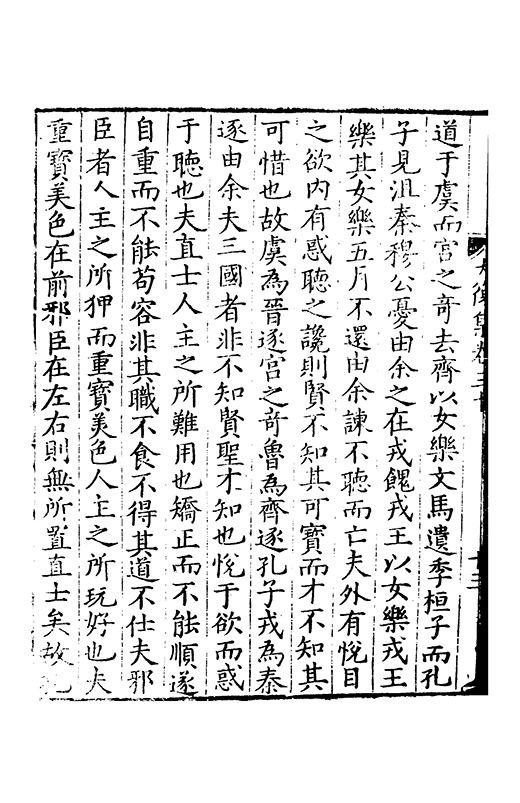 道于虞而宫之奇去齊以女樂文馬遺季桓子而孔
子見沮秦穆公憂由余之在戎餽戎王以女樂戎王
樂其女樂五月不還由余諫不聽而亡夫外有悅目
之欲内有惑聽之讒則賢不知其可寶而才不知其
可惜也故虞為晉逐宫之奇魯為齊逐孔子戎為秦
逐由余夫三國者非不知賢聖才知也悅于欲而惑
于聽也夫直士人主之所難用也矯正而不能順遂
自重而不能苟容非其職不食不得其道不仕夫邪
臣者人主之所狎而重寶美色人主之所玩好也夫
重寶美色在前邪臣在左右則無所置直士矣故